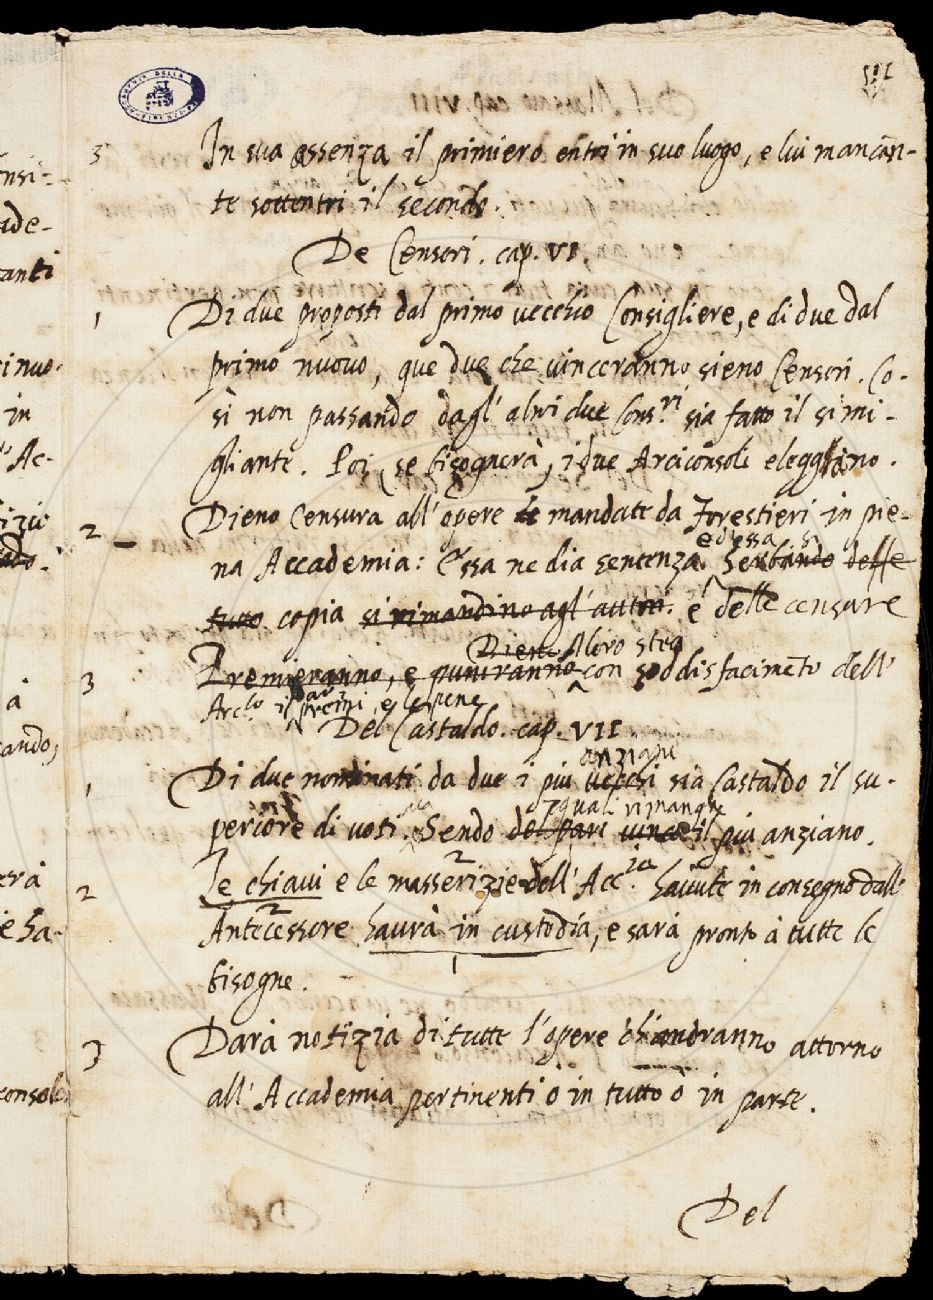 3 In sua assenza il primiero entri in suo luogo, e lui mancan-
te sottentri il secondo.
De Censori. cap. VI.
1 Di due proposti dal primo vecchio Consigliere, e di due dal
primo nuovo, que due che vinceranno sieno Censori. Co-
sì non passando dagl' altri due Cons.ri sia fatto il simi-
gliante. Poi, se bisognerà, i due Arciconsoli eleggano.
2 Dieno Censura all' opere le mandate da Forestieri in pie-
ed essa si
na Accademia: Essa ne dia sentenza. Serbando delle
tutto copia si rimandino agl' autori. e delle censure
Dieno Aloro
3 Premieranno, e puniranno con soddisfacimento dell'
Arc.lo i premi, e le pene
Del Castaldo. cap. VII
anziani
1 Di due nominati da due i piu vecchi sia Castaldo il su-
equali rimanga
periore di voti. Sendo del pari vince il più anziano.
2 Le chiavi e le masserizie dell' Acc.ia havute in consegno dall'
Antecessore haurà in custodia, e sarà pronto à tutte le
bisogne.
3 Darà notizia di tutte l' opere ch' andranno attorno
all' Accademia pertinenti ò in tutto ò in parte.
Del